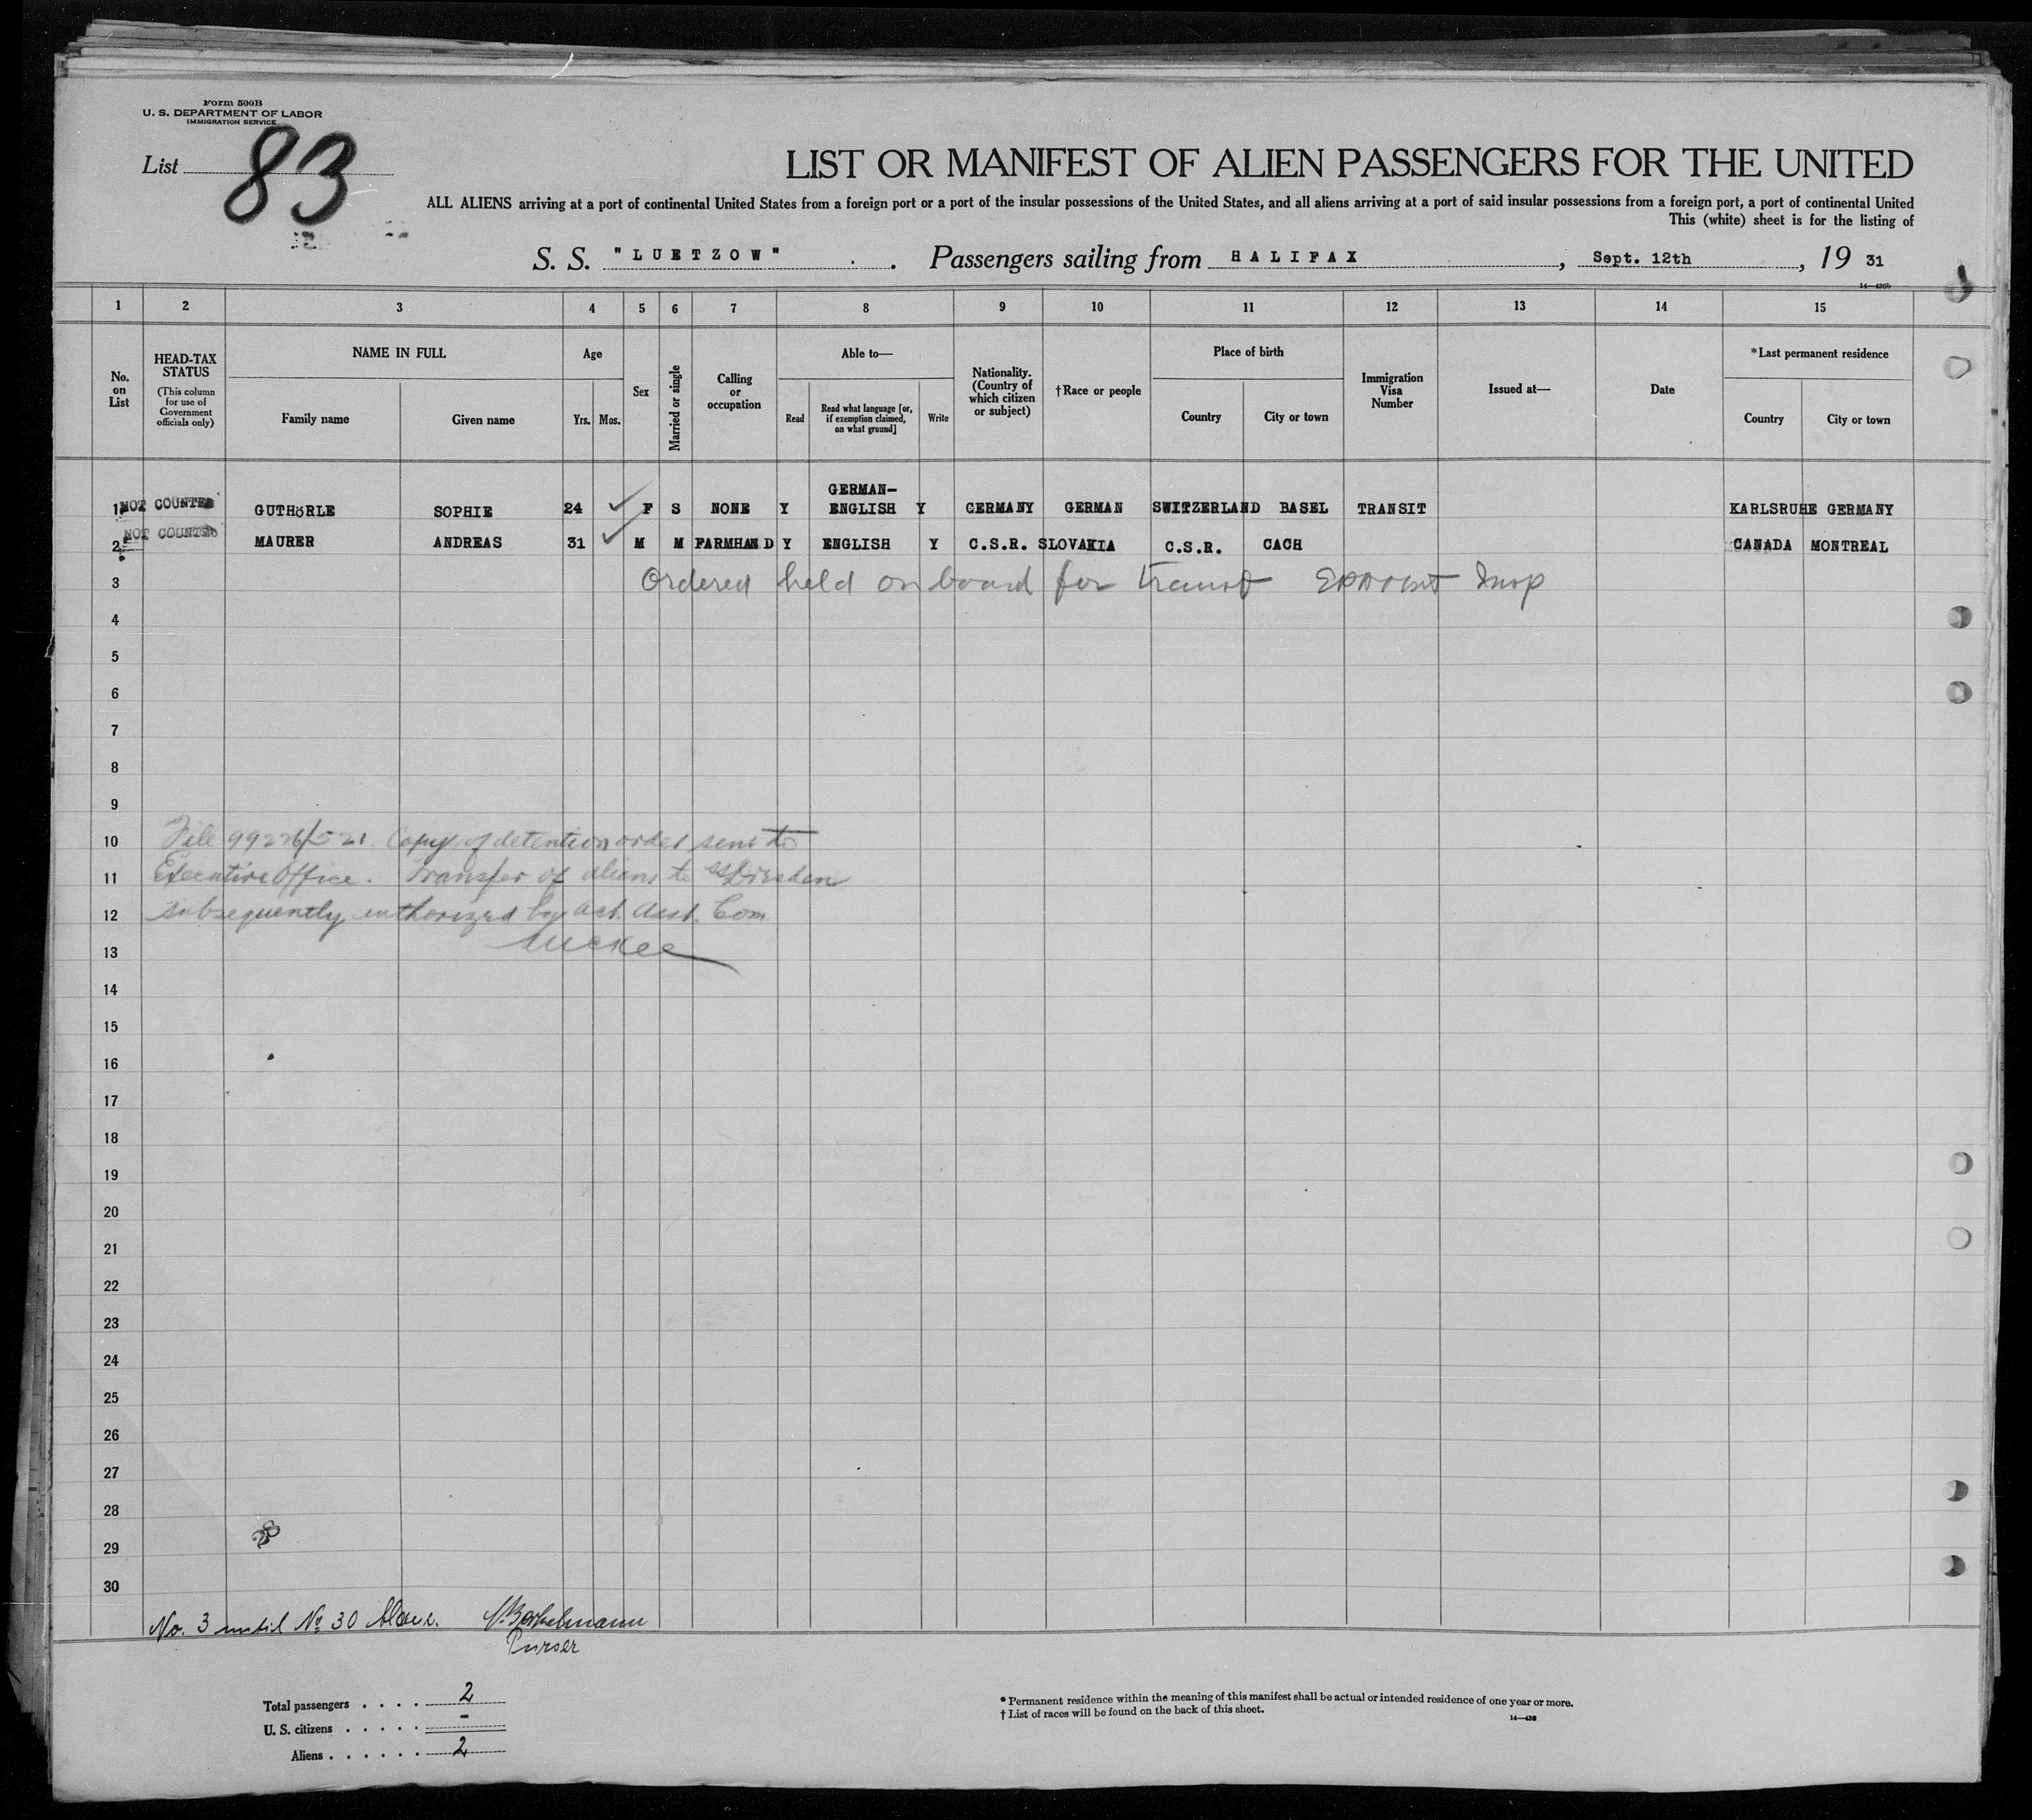 Form 500B
U. S. DEPARTMENT OF LABOR
IMMIGRATION SERVICE
List 83
LIST OR MANIFEST OF ALIEN PASSENGERS FOR THE UNITED
ALL ALIENS arriving at a port of continental United States from a foreign port or a port of the insular possessions of the United States, and all aliens arriving at a port of said insular possessions from a foreign port, a port of continental United
This (white) sheet is for the listing of
S. S. "LUETZOW" . Passengers sailing from HALIFAX, Sept. 12th, 19 31
1 2 3 4 5 6 7 8 9 10 11 12 13 14 15
No. on List
HEAD-TAX STATUS (This column for use of Government officials only)
NAME IN FULL
Family name Given name
Age
Yrs. Mos.
Sex
Married or single
Calling or occupation
Able to—
Read
Read what language [or, if exemption claimed, on what ground]
Write
Nationality. (Country of which citizen or subject)
†Race or people
Place of birth
Country City or town
Immigration Visa Number
Issued at—
Date
*Last permanent residence
Country City or town
1 NOT COUNTED GUTHöRLE SOPHIE 24 F S NONE Y GERMAN-ENGLISH Y GERMANY GERMAN SWITZERLAND BASEL TRANSIT KARLSRUHE GERMANY
2 NOT COUNTED MAURER ANDREAS 31 M M FARMHAND Y ENGLISH Y C.S.R. SLOVAKIA C.S.R. CACH CANADA MONTREAL
3 Ordered held on board for transit Insp
4
5
6
7
8
9
10 File 99226/521. Copy of detention order sent to
11 Executive Office. Transfer of aliens to SS Dresden
12 subsequently authorized by Act. Asst. Com
13 McKee
14
15
16
17
18
19
20
21
22
23
24
25
26
27
28
29
30
No. 3 until No 30
Purser
Total passengers . . . . 2
U. S. citizens . . . . . -
Aliens . . . . . . 2
* Permanent residence within the meaning of this manifest shall be actual or intended residence of one year or more.
† List of races will be found on the back of this sheet.
14—430